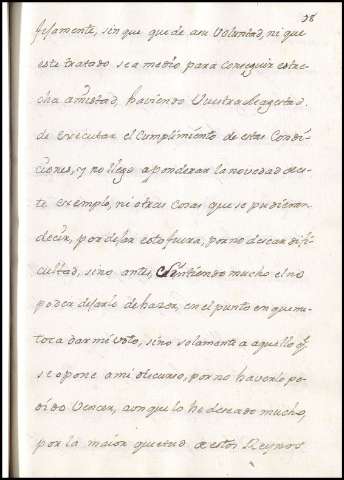 38
fesamente, sin que quede a su Voluntad, ni que
este tratado sea medio para conseguir estre-
cha amistad, haviendo Vuestra Magestad
de executar el cumplimiento de estas Condi-
ciones, y no llego a ponderar la novedad des-
te exemplo, ni otras cosas que se pudieran
decir, por dejar esto fuera, por no desear difi-
cultad, sino antes, Sintiendo mucho el no
poder dejarlo de hazer, en el punto en que me
toca dar mi voto, sino solamente a aquello q.
se opone a mi discurso, por no haverlo po-
dido Vencer, aunque lo he deseado mucho,
por la maior quietud de estos Reynos